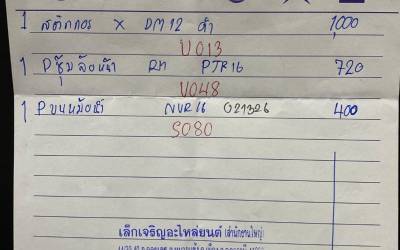 1 สติกเกอร X DM12 ดำ 1,000
V013
1 Pซุ้มล้อหน้า RH PTR16 720
V048
1 Pขนหม้อน้ำ NVR16 021326 400
S080
เล็กเจริญอะไหล่ยนต์ (สำนักงานใหญ่)